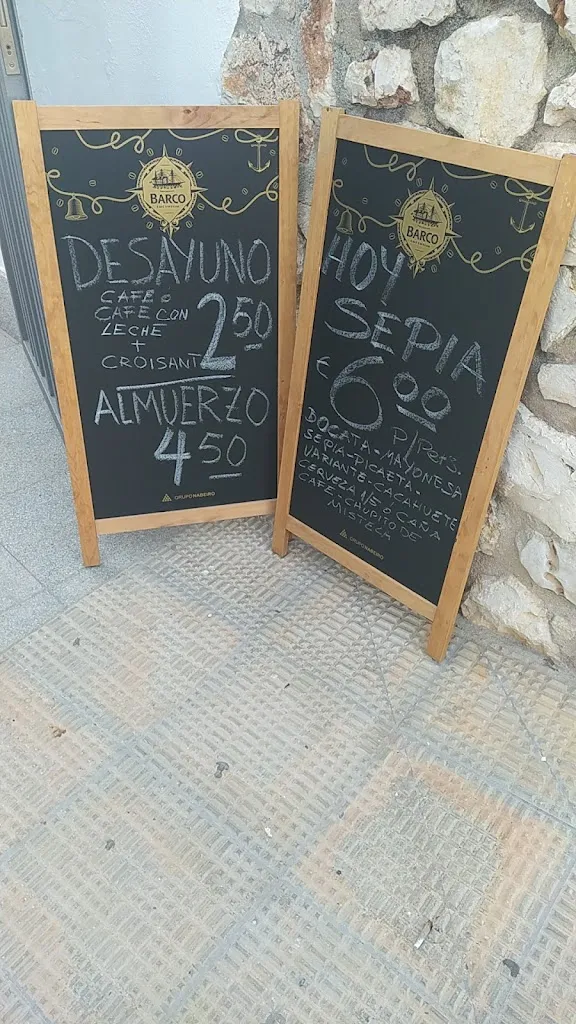 BARCO
DESAYUNO
CAFE O
CAFE CON
LECHE
+
CROISANT
2 50
ALMUERZO
4 50
GRUPO NABEIRO
BARCO
HOY
SEPIA
€ 6 00
P/PERS.
BOCATA-MAYONESA
SEPIA-PICAETA-
VARIANTE-CACAHUETE
CERVEZA 1/5 O CAÑA
CAFE-CHUPITO DE
GRUPO NABEIRO